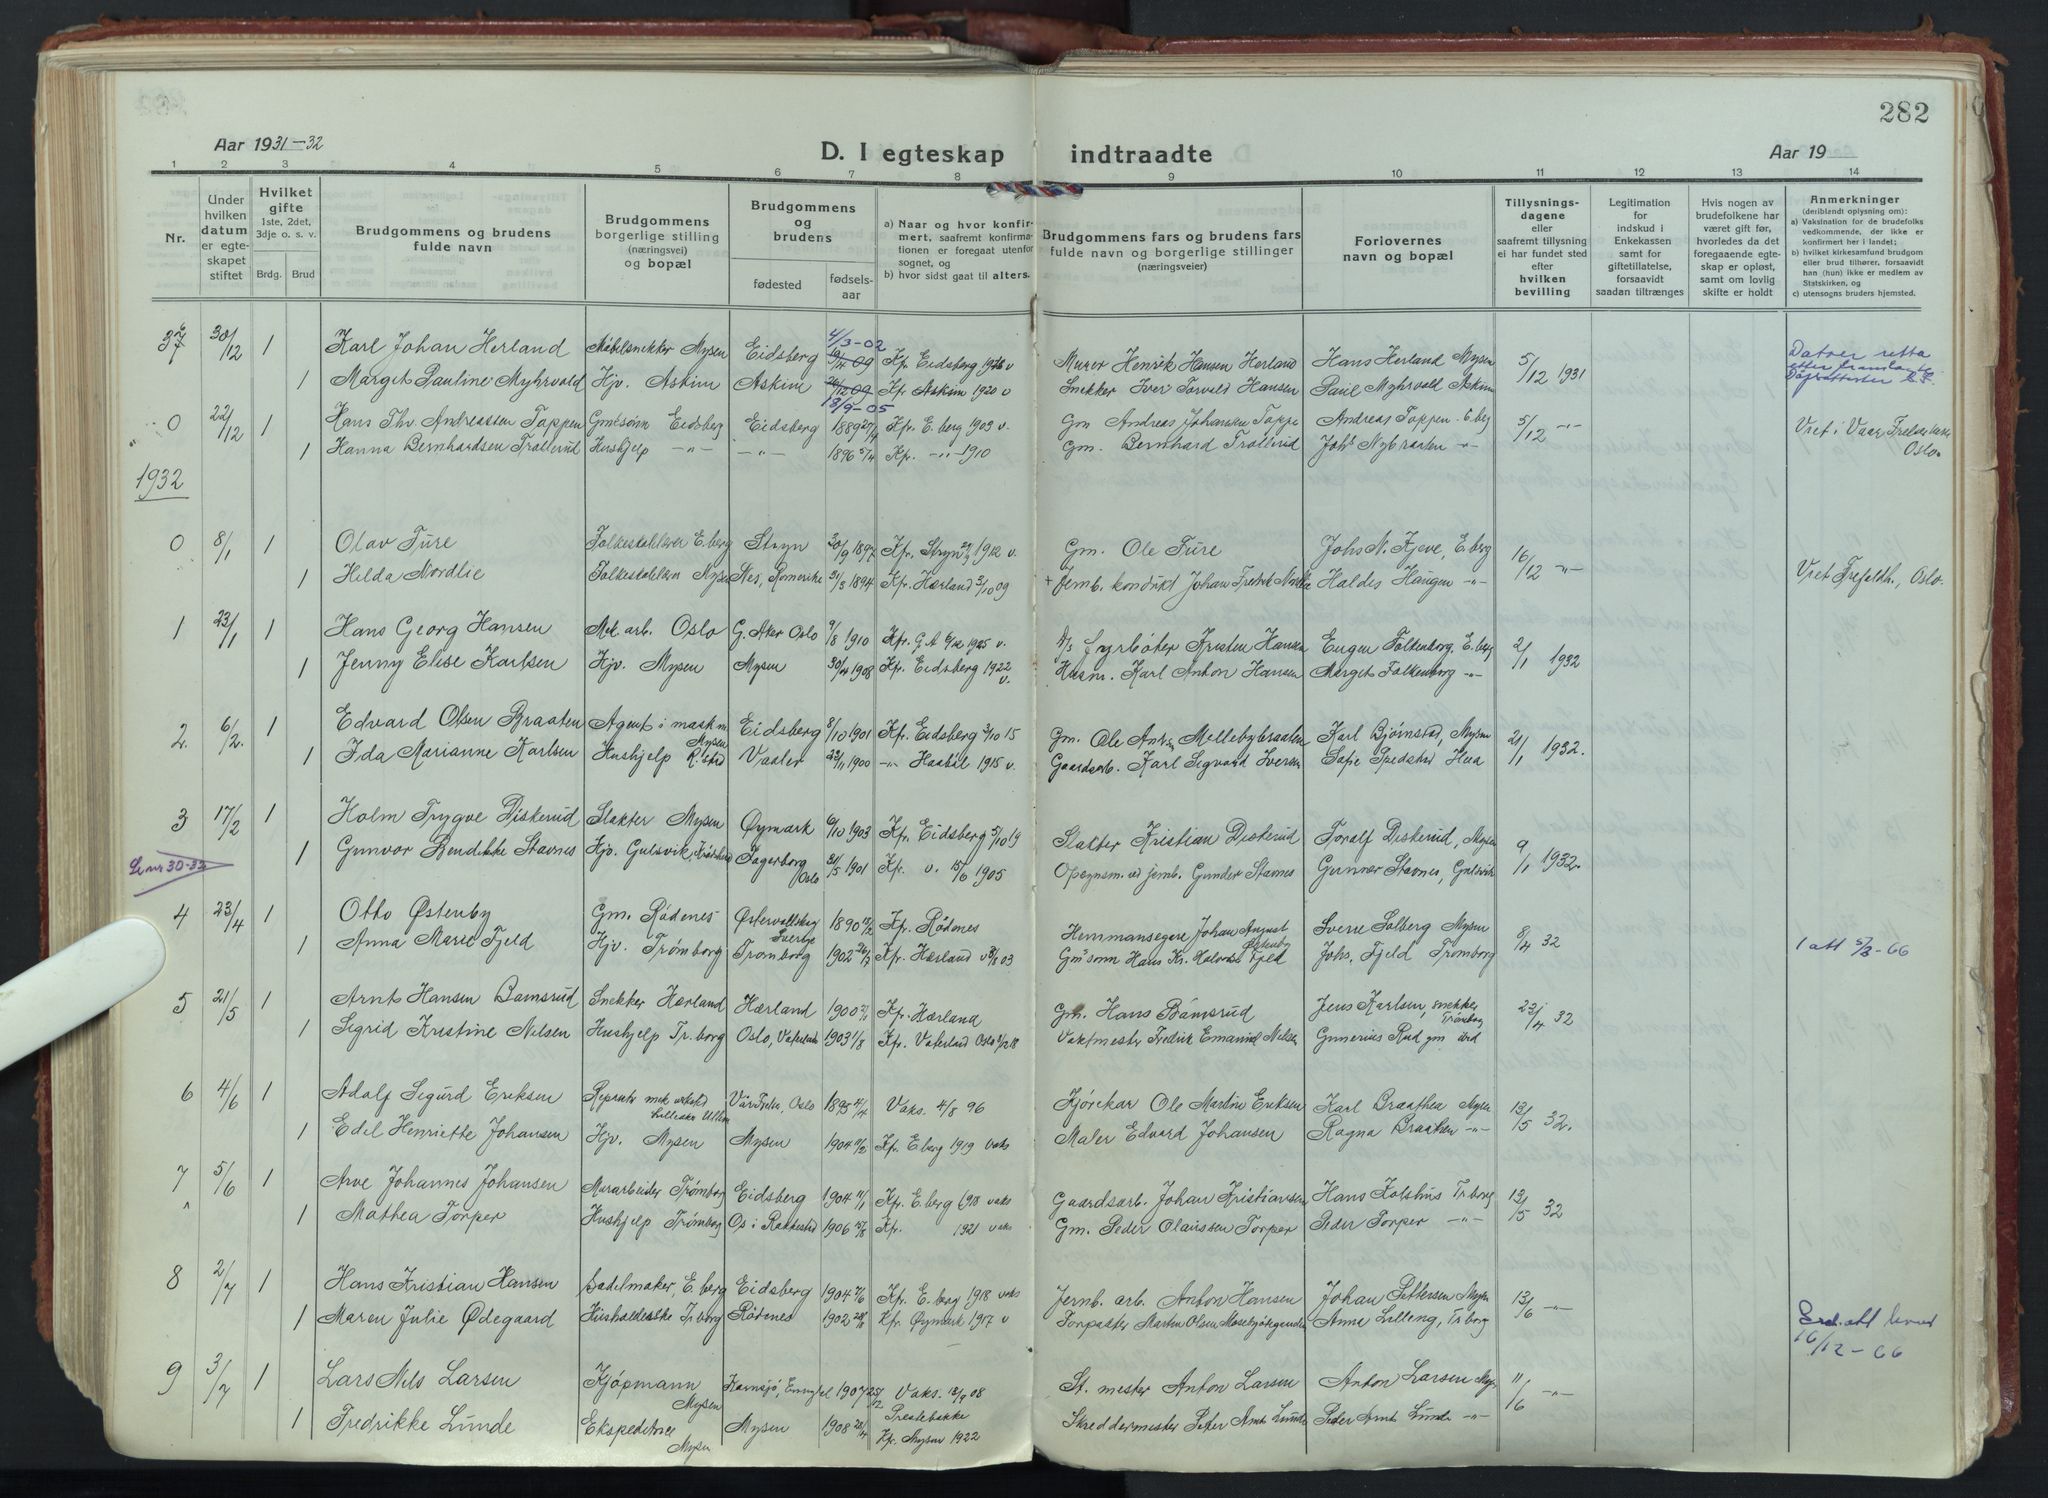 282
Aar 1931-32
D. I egteskap indtraadte
Aar 19
1 2 3 4 5 6 7 8 9 10 11 12 13 14
Nr.
Under hvilken datum er egteskapet stiftet
Hvilket gifte 1ste, 2det, 3dje o. s. v.
Brdg. Brud
Brudgommens og brudens fulde navn
Brudgommens borgerlige stilling (næringsvei) og bopæl
Brudgommens og brudens
fødested
fødselsaar
a) Naar og hvor konfirmert, saafremt konfirmationen er foregaat utenfor sognet, og
b) hvor sidst gaat til alters.
Brudgommens fars og brudens fars fulde navn og borgerlige stillinger (næringsveier)
Forlovernes navn og bopæl
Tillysningsdagene eller saafremt tillysning ei har fundet sted efter hvilken bevilling
Legitimation for indskud i Enkekassen samt for giftetillatelse, forsaavidt saadan tiltrænges
Hvis nogen av brudefolkene har været gift før, hvorledes da det foregaaende egteskap er opløst, samt om lovlig skifte er holdt
Anmerkninger
(deriblandt oplysning om):
a) Vaksination for de brudefolks vedkommende, der ikke er konfirmert her i landet;
b) hvilket kirkesamfund brudgom eller brud tilhører, forsaavidt han (hun) ikke er medlem av Statskirken, og
c) utensogns bruders hjemsted.
37 30/12 1 Karl Johan Herland Møbelsnekker Mysen Eidsberg 4/3-02 Kfr. Eidsberg v Murer Henrik Hansen Herland Hans Herland Mysen 5/12 1931 Datoer retta etter framlagte
1 Margit Pauline Myhrvold Hjv. Askim Askim 18/9-05 Kfr. Askim 1920 v Snekker Iver Torvald Hansen Paul Myhrvold Askim
0 22/12 1 Hans Thv. Andreassen Toppen Gmdsønn Eidsberg Eidsberg 1889 27/4 Kfr. E.berg 1903 v. Gm Andreas Johansen Toppe Andreas Toppen E.berg 5/12 -"- Viet i Vaar Frelsers Oslo.
1 Hanna Bernhardsen Trollerud Hushjelp -"- -"- 1896 5/4 Kfr. -"- 1910 Gm. Bernhard Trollerud Johs Nybraaten -"-
1932
0 8/1 1 Olav Fure Folkeskolelærer E.berg Stryn 30/9 1897 Kfr. Stryn 1912 v. Gm. Ole Fure Johs N. Kjeve, E.berg 16/12 -"- Viet Trefoldh., Oslo.
1 Hilda Nordlie Mysen Nes, Romerike 31/3 1894 Kfr. Hærland 3/10 09 + Jernb. kondukt Johan Fredrik Nordlie Haldis Haugen -"-
1 23/1 1 Hans Georg Hansen Mek arb. Oslo G. Aker Oslo 9/8 1910 Kfr. G.A 6/12 1925 v. D/S fyrbøter Kristen Hansen Eugen Folkenborg, E.berg 2/1 1932
1 Jenny Elise Karlsen Hjv. Mysen Mysen 30/4 1908 Kfr. Eidsberg 1922 v. Husm. Karl Anton Hansen Margit Folkenborg -"-
2. 6/2. 1 Edvard Olsen Braaten Agent i mask. m. Mysen Eidsberg 8/10 1901 Kfr. Eidsberg 3/10 15 Gm. Ole Mellebybraaten Karl Bjørnstad, Mysen 21/1 1932.
1 Ida Marianne Karlsen Hushjelp R.stad Vaaler 23/11 1900 -"- Haabøl 1915 v. Gaardsarb. Karl Sigvard Iversen Sofie Spedstad Heia
3 17/2 1 Holm Trygve Diskerud Slakter Mysen Øymark 6/10 1903 Kfr. Eidsberg 5/10 19 Slakter Kristian Diskerud Toralf Diskerud, Mysen 9/1 1932.
Se nr 30-32
1 Gunvor Bendikke Stavnes Hjv. Gulsvik, Fagerborg Oslo 31/5 1901 Kfr. v. 15/6 1905 Opsynsm. ved jernb. Gunder Stavnes Gunnar Stavnes, Gulsvik
4 23/4 1 Otto Østenby Gm. Rødenes Østervallskog Sverige 1890 Kfr. Rødenes Hemmansegere Johan August Østenby Sverre Solberg Mysen 8/4 32
1 Anna Marie Fjeld Hjv. Trømborg Trømborg 1902 Kfr. Hærland Gmsønn Hans Kr. Halvorsen Fjeld Johs. Fjeld Trømborg 1 att 5/3-66
5 21/5 1 Arnt Hansen Bamsrud Snekker Hærland Hærland 1900 Kfr. Hærland Gm. Hans Bamsrud Jens Karlsen, snekker Trømborg 23/4 32
1 Sigrid Kristine Nilsen Hushjelp Tr.borg Oslo, Vaterland 1903 1/8 Kfr. Vaterland Oslo Vaktmester Fredrik Emanuel Nilsen Gunerius Rud gm ibid
6 4/6 1 Adolf Sigurd Eriksen Reprsntr mek verksted Vår Frels. Oslo 1895 Vaks. 4/8 96 Kjørekar Ole Martin Eriksen Karl Braathen Mysen 13/5 32.
1 Edel Henriette Johansen Hjv. Mysen Mysen 1904 Kfr. E.berg 1919 vaks Maler Edvard Johansen Ragna Braathen -"-
7 5/6 1 Arve Johannes Johansen Murarbeider Trømborg Eidsberg 1904 Kfr. E.berg 1918 vaks Gaardsarb. Johan Kristiansen Hans Kolshus Tr.borg 13/5 32
1 Mathea Torper Hushjelp Trømborg Os i Rakkestad 1906 Kfr. 1921 vaks Gm. Peder Olaussen Torper Peder Torper -"-
8 2/7 1 Hans Kristian Hansen Sadelmaker, E.berg Eidsberg 1904 Kfr. E.berg 1918 vaks Jernb. arb. Anton Hansen Johan Pettersen Mysen 13/6 -"-
1 Maren Julie Ødegaard Husholderske Tr.borg Rødenes 1902 Kfr. Øymark 1917 v Martin Olsen Anne Lilleng, Tr.borg 16/12-66
9 3/7 1 Lars Nils Larsen Kjøpmann Mysen Kornsjø, 1907 Vaks. 08 Prestebakke St. mester Anton Larsen Anton Larsen 11/6 -"-
1 Fredrikke Lunde Ekspeditrise Mysen Mysen 1908 Kfr. Mysen 1922 Skreddermester Peter Arnt Lunde Peder Arnt Lunde -"-